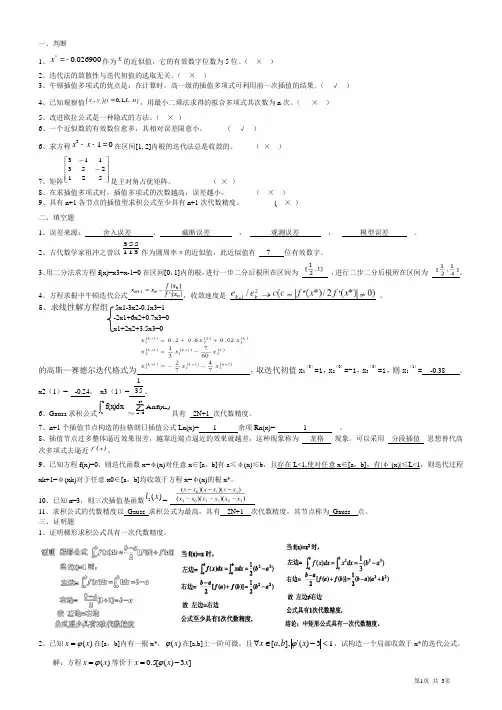 一、判断
1、x*=-0.026900作为x的近似值，它的有效数字位数为5位。（ × ）
2、迭代法的敛散性与迭代初值的选取无关。（ × ）
3、牛顿插值多项式的优点是：在计算时，高一级的插值多项式可利用前一次插值的结果。（ √ ）
4、已知观察值(x_i, y_i)(i=0,1,L n)，用最小二乘法求得的拟合多项式其次数为n次。（ × ）
5、改进欧拉公式是一种隐式的方法。（ × ）
6、一个近似数的有效数位愈多，其相对误差限愈小。 （ √ ）
6、求方程x³-x-1=0在区间[1, 2]内根的迭代法总是收敛的。 （ × ）
7、矩阵[3 -1 1; 3 5 -2; 1 2 5]是主对角占优矩阵。 （ × ）
8、在求插值多项式时，插值多项式的次数越高，误差越小。 （ × ）
9、具有n+1各节点的插值型求积公式至少具有n+1次代数精度。 ( × ）
二、填空题
1、误差来源： 舍入误差 ， 截断误差 ， 观测误差 ， 模型误差 。
2、古代数学家祖冲之曾以355/113作为圆周率π的近似值，此近似值有 7 位有效数字。
3、用二分法求方程f(x)=x3+x-1=0在区间[0，1]内的根，进行一步二分后根所在区间为 [1/2,1] ，进行二步二分后根所在区间为 [1/2,3/4]。
4、方程求根中牛顿迭代公式x_{n+1}=x_n-f(x_n)/f'(x_n)，收敛速度是 e_{k+1}/e_k²→c(c=|f''(x*)/2f'(x*)|≠0) 。
5、求线性解方程组 5x1-3x2-0.1x3=1
-2x1+6x2+0.7x3=0
x1+2x2+3.5x3=0
x₁^(k+1)=0.2+0.6x₂^(k)+0.02x₃^(k)
x₂^(k+1)=1/3 x₁^(k+1)-7/60 x₃^(k)
x₃^(k+1)=-2/7 x₁^(k+1)-4/7 x₂^(k+1)
的高斯—赛德尔迭代格式为 ，取迭代初值x₁⁽⁰⁾=1,x₂⁽⁰⁾=-1,x₃⁽⁰⁾=1,则x₁⁽¹⁾= -0.38 。
x2（1）= -0.24, x3（1）= 1/35。
6、Gauss求积公式∫f(x)dx≈∑Anf(xₙ)具有 2N+1 次代数精度。
7、n+1个插值节点构造的拉格朗日插值公式Ln(x)= 1 余项Rn(x)= 1 。
8、插值节点过多整体逼近效果很差，越靠近端点逼近的效果就越差，这种现象称为 龙格 现象。可以采用 分段插值 思想替代高
次多项式去逼近f(x)。
9、已知方程f(x)=0，则迭代函数x=φ(x)对任意x∈[a，b]有a≤φ(x)≤b，且存在L<1,使对任意x∈[a，b]，有|φ′(x)|≤L<1，则迭代过程
xk+1=φ(xk)对于任意x0∈[a，b]均收敛于方程x=φ(x)的根x*。
10、已知n=3，则三次插值基函数l₂(x)=(x-x₀)(x-x₁)(x-x₃)/(x₂-x₀)(x₂-x₁)(x₂-x₃)
11、求积公式的代数精度以 Gauss 求积公式为最高，具有 2N+1 次代数精度，其节点称为 Gauss 点。
三、证明题
1、证明梯形求积公式具有一次代数精度。
证明 梯形公式 ∫f(x)dx≈(b-a)/2[f(a)+f(b)]
当f(x)=1时，
左边=∫f(x)dx=∫1dx=b-a
右边=(b-a)/2[f(a)+f(b)]=b-a
故 左边=右边
公式至少具有0次代数精度.
当f(x)=x 时，
左边=∫f(x)dx=∫xdx=1/2(b²-a²)
右边=(b-a)/2[f(a)+f(b)]=1/2(b²-a²)
故 左边=右边
公式至少有1次代数精度.
当f(x)=x² 时，
左边=∫f(x)dx=∫x²dx=1/3(b³-a³)
右边=(b-a)/2[f(a)+f(b)]=1/2(b-a)(a²+b²)
故 左边≠右边
公式具有1次代数精度.
结论：中矩形公式具有一次代数精度.
2、已知x=φ(x)在[a，b]内有一根x*，φ(x)在[a,b]上一阶可微，且∀x∈[a,b],|φ'(x)-3|<1，试构造一个局部收敛于x*的迭代公式。
解：方程x=φ(x)等价于x=0.5[φ(x)-3x]
第1页 共 3页